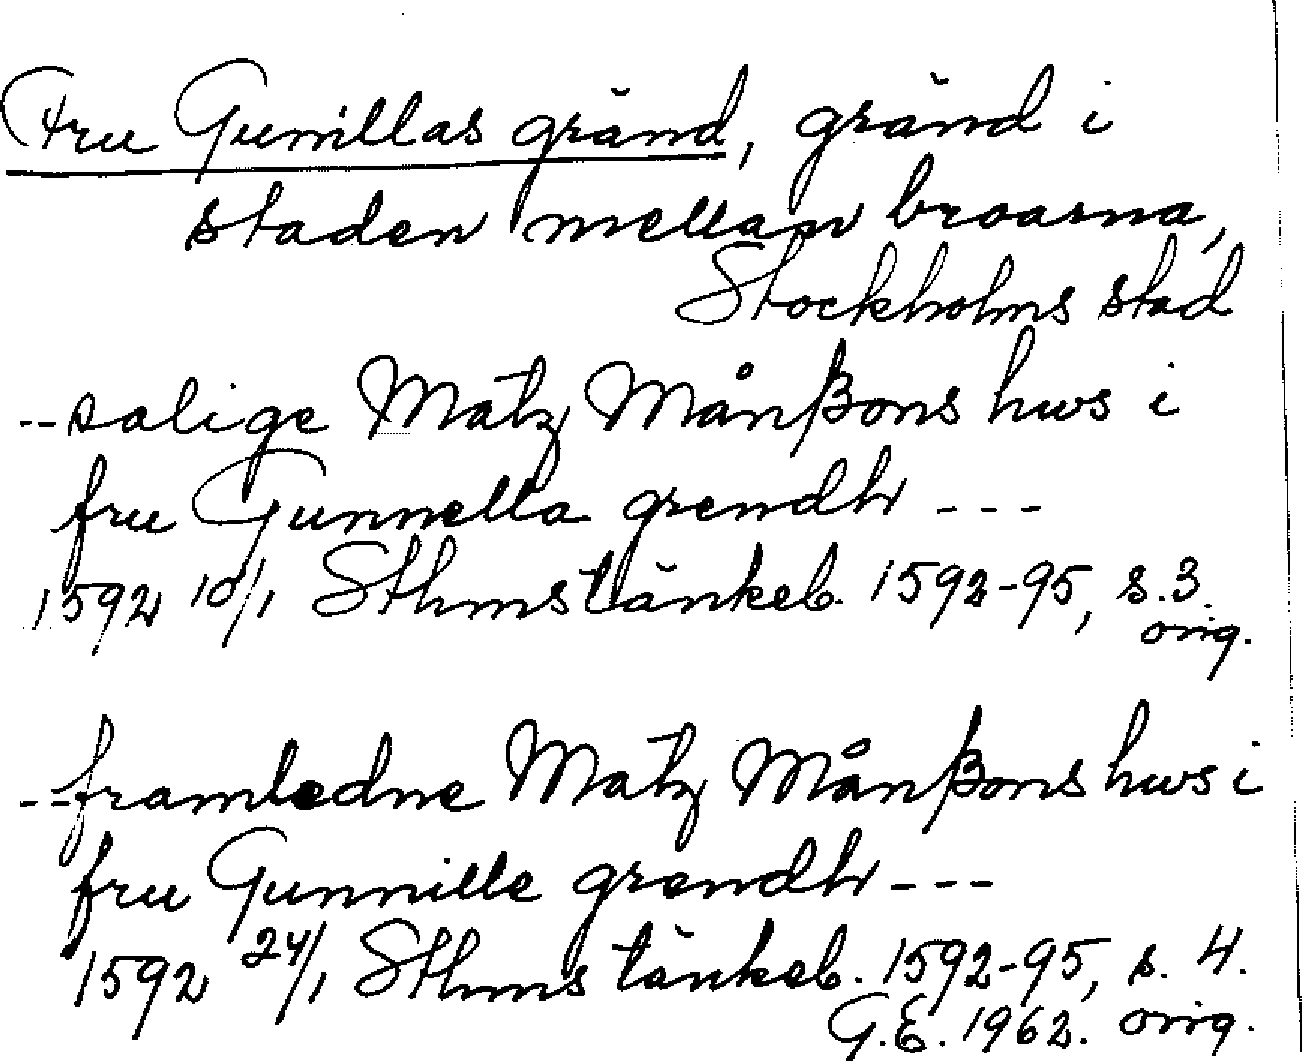 Fru Gunillas gränd, gränd i
staden mellan broarna,
Stockholms stad
--salige Matz Månßons hws i
fru Gunnella grendh ---
1592 10/1 Sthms tänkeb. 1592-95, s. 3.
orig.
--framledne Matz Månßons hws i
fru Gunnille grendh ---
1592 24/1 Sthms tänkeb. 1592-95, s. 4.
G.E. 1962. orig.